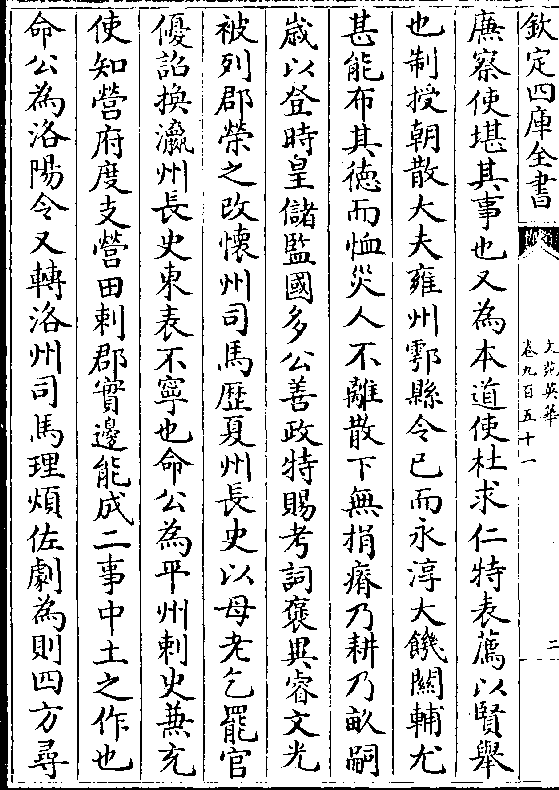 欽定四庫全書
文苑英華
卷九百五十一
三
廉察使堪其事也又為本道使杜求仁特表薦以賢舉
也制授朝散大夫雍州鄠縣令已而永淳大饑關輔尤
甚能布其徳而恤災人不離散下無捐瘠乃耕乃畝嗣
嵗以登時皇儲監國多公善政特賜考詞褒異睿文光
被列郡榮之改懷州司馬歴夏州長史以母老乞罷官
優詔換瀛州長史東表不寧也命公為平州刺史兼充
使知營府度支營田剌郡實邊能成二事中土之作也
命公為洛陽令又轉洛州司馬理煩佐劇為則四方尋